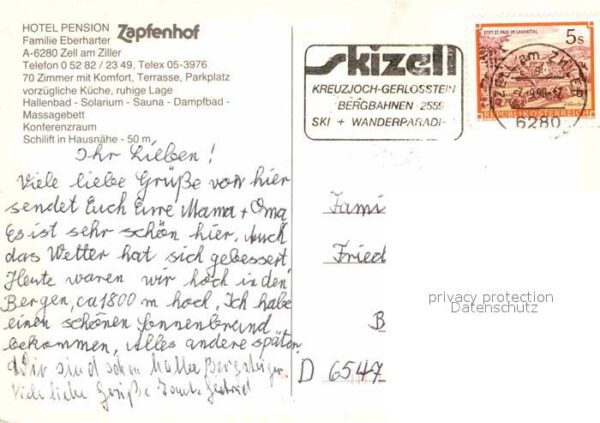 HOTEL PENSION Zapfenhof
Familie Eberharter
A-6280 Zell am Ziller
Telefon 0 52 82 / 23 49, Telex 05-3976
70 Zimmer mit Komfort, Terrasse, Parkplatz
vorzügliche Küche, ruhige Lage
Hallenbad - Solarium - Sauna - Dampfbad -
Massagebett
Konferenzraum
Schilift in Hausnähe - 50 m
skizell
KREUZJOCH-GERLOSSTEIN
BERGBAHNEN 2559
SKI + WANDERPARADI
STIFT ST. PAUL IM LAVANTTAL
5s
REPUBLIK ÖSTERREICH
ZELL am ZILLER
6280
Ihr Lieben!
Viele liebe Grüße von hier
sendet Euch Eure Mama + Oma
Es ist sehr schön hier. Auch
das Wetter hat sich gebessert
Heute waren wir hoch in den
Bergen, ca 1800 m hoch. Ich habe
einen schönen Sonnenbrand
bekommen. Alles andere später
Wir sind schon tolle Bergsteiger.
Viele liebe Grüße Tante
Fami
Fried
B
D 6547
privacy protection
Datenschutz